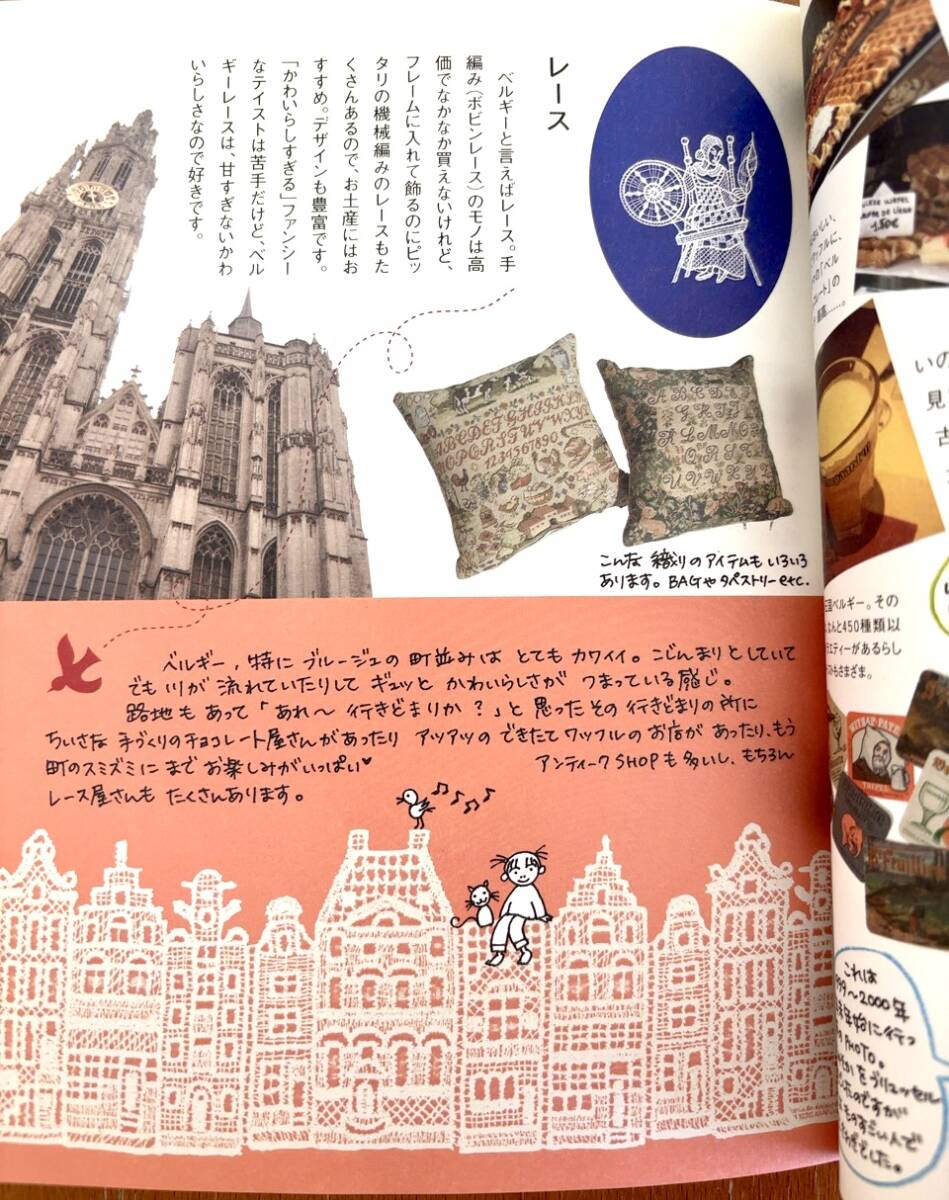 レース
ベルギーと言えばレース。手
編み(ボビンレース)のモノは高
価でなかなか買えないけれど、
フレームに入れて飾るのにピッ
タリの機械編みのレースもた
くさんあるので、お土産にはお
すすめ。デザインも豊富です。
「かわいらしすぎる」ファンシー
なテイストは苦手だけど、ベル
ギーレースは、甘すぎないかわ
いらしさなので好きです。
ABCDEFGHIJKL
OPQRSTUVWX
1234567890
こんな 織りのアイテムも いろいろ
あります。BAGやタペストリー etc.
ベルギー、特に ブルージュの 町並みは とても カワイイ。こじんまりとしていて
でも 川が 流れていたりして ギュッと かわいらしさが つまっている感じ。
路地も あって「あれ〜 行きどまりか?」と 思った その 行きどまりの 所に
ちいさな 手づくりのチョコレート屋さんがあったり アツアツの できたて ワッフルの お店が あったり、もう
町のスミズミにまで お楽しみがいっぱい♥ アンティークSHOPも 多いし、もちろん
レース屋さんも たくさんあります。
1.50€
いの
見
古
王国ベルギー。その
なんと450種類以
エティーがあるらし
ストもさまざま。
これは
99〜2000年
年始に行っ
PHOTO。
をブリュッセル